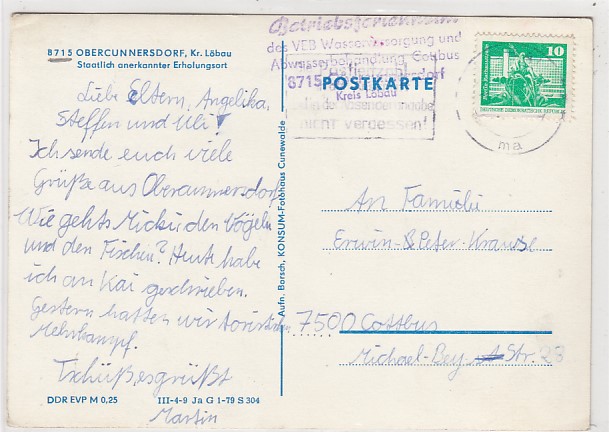 8715 OBERCUNNERSDORF, Kr. Löbau
Staatlich anerkannter Erholungsort
Liebe Eltern, Angelika,
Steffen und Uli!
Ich sende euch viele
Grüße aus Obercunnersdorf.
Wie gehts Micki den Vögeln
und den Fischen? Heute habe
ich an Kai geschrieben.
Gestern hatten wir toristischen
Mehrkampf.
Tschüß es grüßt
Martin
DDR EVP M 0,25 III-4-9 Ja G 1-79 S 304
Aufn. Barsch, KONSUM-Fotohaus Cunewalde
Betriebsferienheim
des VEB Wasserversorgung und
Abwasserbehandlung Cottbus
8715 Obercunnersdorf
Kreis Löbau
NICHT vergessen!
POSTKARTE
10
DEUTSCHE DEMOKRATISCHE REPUBLIK
ma
An Familie
Erwin & Peter Krause
7500 Cottbus
Michael-Bey- Str. 23